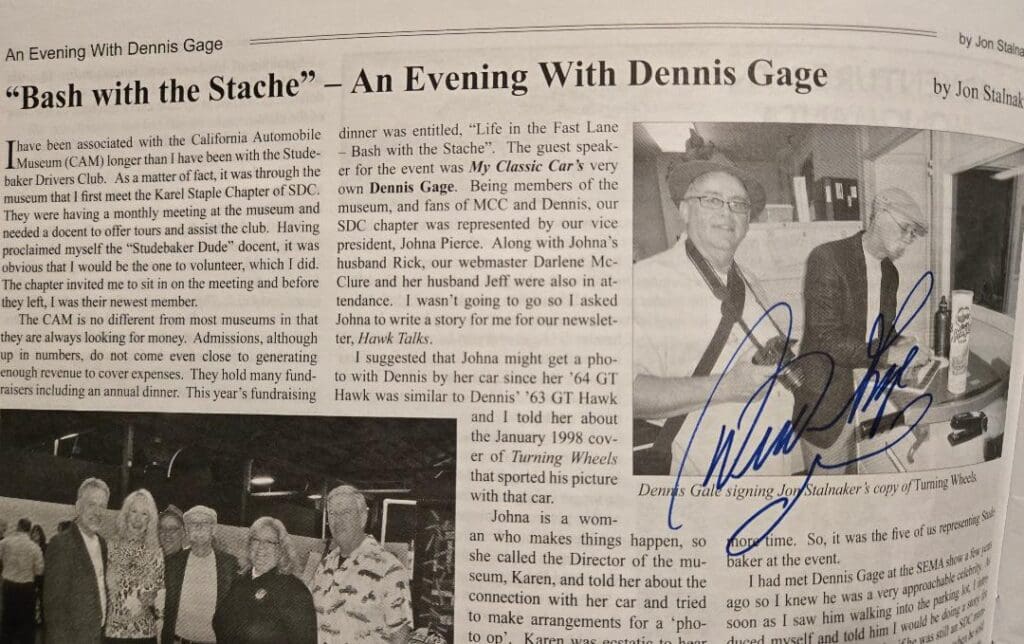 An Evening With Dennis Gage
by Jon Stalna
“Bash with the Stache” – An Evening With Dennis Gage
by Jon Stalnak
I have been associated with the California Automobile
Museum (CAM) longer than I have been with the Stude-
baker Drivers Club. As a matter of fact, it was through the
museum that I first meet the Karel Staple Chapter of SDC.
They were having a monthly meeting at the museum and
needed a docent to offer tours and assist the club. Having
proclaimed myself the “Studebaker Dude” docent, it was
obvious that I would be the one to volunteer, which I did.
The chapter invited me to sit in on the meeting and before
they left, I was their newest member.
The CAM is no different from most museums in that
they are always looking for money. Admissions, although
up in numbers, do not come even close to generating
enough revenue to cover expenses. They hold many fund-
raisers including an annual dinner. This year’s fundraising
dinner was entitled, “Life in the Fast Lane
– Bash with the Stache”. The guest speak-
er for the event was My Classic Car’s very
own Dennis Gage. Being members of the
museum, and fans of MCC and Dennis, our
SDC chapter was represented by our vice
president, Johna Pierce. Along with Johna’s
husband Rick, our webmaster Darlene Mc-
Clure and her husband Jeff were also in at-
tendance. I wasn’t going to go so I asked
Johna to write a story for me for our newslet-
ter, Hawk Talks.
I suggested that Johna might get a pho-
to with Dennis by her car since her ’64 GT
Hawk was similar to Dennis’ ’63 GT Hawk
and I told her about
the January 1998 cov-
er of Turning Wheels
that sported his picture
with that car.
Johna is a wom-
an who makes things happen, so
she called the Director of the mu-
seum, Karen, and told her about the
connection with her car and tried
to make arrangements for a ‘pho-
to op’. Karen was ecstatic to hear
Dennis Gale signing Jon Stalnaker’s copy of Turning Wheels
more time. So, it was the five of us representing Stude-
baker at the event.
I had met Dennis Gage at the SEMA show a few years
ago so I knew he was a very approachable celebrity. As
soon as I saw him walking into the parking lot, I
duced myself and told him I would be doing a story
she was still an SDC